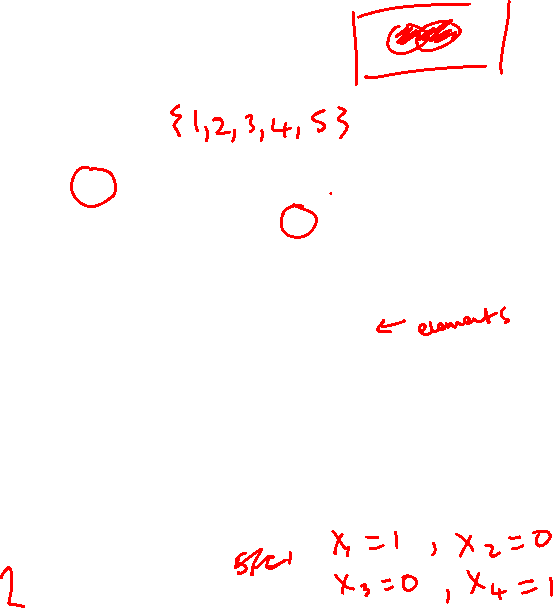 {1,2,3,4,5}
← elements
x₁=1, x₂=0
x₃=0, x₄=1